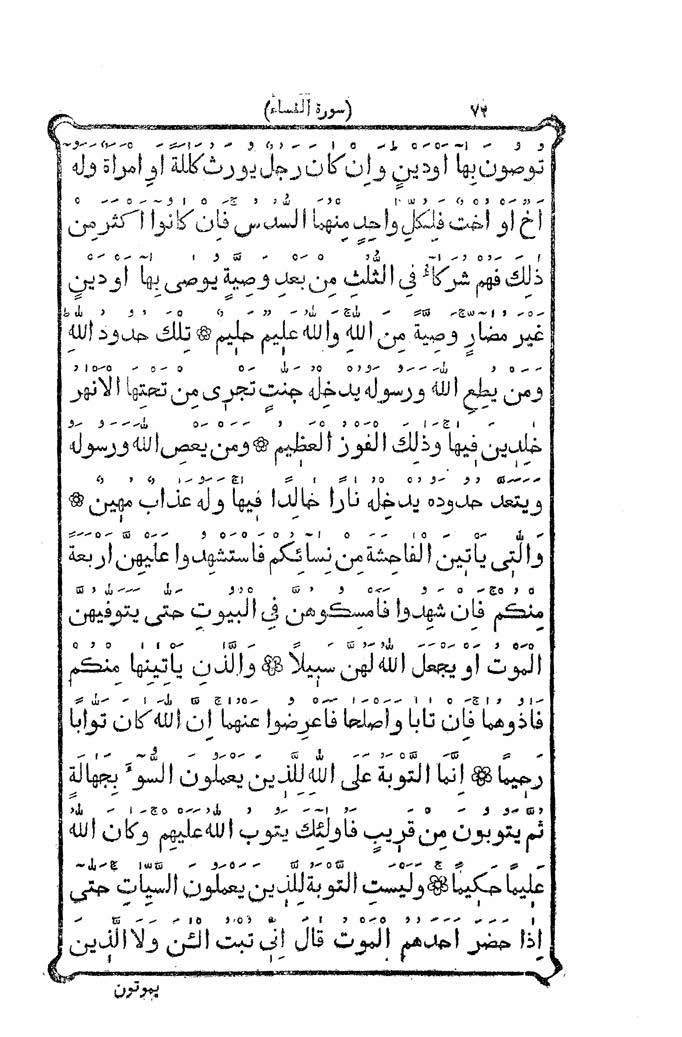 ٧٢ (سورة النساء)
تُوصُونَ بِهَآ أَوْدَيْنٍ وَإِنْ كَانَ رَجُلٌ يُورَثُ كَلٰلَةً أَوِ امْرَأَةٌ وَلَهٗ
أَخٌ أَوْ أُخْتٌ فَلِكُلِّ وَاحِدٍ مِنْهُمَا السُّدُسُ فَإِنْ كَانُوا أَكْثَرَ مِنْ
ذٰلِكَ فَهُمْ شُرَكَآءُ فِي الثُّلُثِ مِنْ بَعْدِ وَصِيَّةٍ يُوصٰى بِهَآ أَوْدَيْنٍ
غَيْرَ مُضَآرٍّ وَصِيَّةً مِنَ اللّٰهِ وَاللّٰهُ عَلِيمٌ حَلِيمٌ ۞ تِلْكَ حُدُودُ اللّٰهِ
وَمَنْ يُطِعِ اللّٰهَ وَرَسُولَهٗ يُدْخِلْهُ جَنّٰتٍ تَجْرِى مِنْ تَحْتِهَا الْأَنْهٰرُ
خٰلِدِينَ فِيهَا وَذٰلِكَ الْفَوْزُ الْعَظِيمُ ۞ وَمَنْ يَعْصِ اللّٰهَ وَرَسُولَهٗ
وَيَتَعَدَّ حُدُودَهٗ يُدْخِلْهُ نَارًا خَالِدًا فِيهَا وَلَهٗ عَذَابٌ مُهِينٌ ۞
وَالّٰتِى يَأْتِينَ الْفَاحِشَةَ مِنْ نِسَآئِكُمْ فَاسْتَشْهِدُوا عَلَيْهِنَّ أَرْبَعَةً
مِنْكُمْ فَإِنْ شَهِدُوا فَأَمْسِكُوهُنَّ فِي الْبُيُوتِ حَتّٰى يَتَوَفّٰيهُنَّ
الْمَوْتُ أَوْ يَجْعَلَ اللّٰهُ لَهُنَّ سَبِيلًا ۞ وَالَّذٰنِ يَأْتِيٰنِهَا مِنْكُمْ
فَاٰذُوهُمَا فَإِنْ تَابَا وَأَصْلَحَا فَأَعْرِضُوا عَنْهُمَا إِنَّ اللّٰهَ كَانَ تَوَّابًا
رَحِيمًا ۞ إِنَّمَا التَّوْبَةُ عَلَى اللّٰهِ لِلَّذِينَ يَعْمَلُونَ السُّوٓءَ بِجَهَالَةٍ
ثُمَّ يَتُوبُونَ مِنْ قَرِيبٍ فَأُولٰٓئِكَ يَتُوبُ اللّٰهُ عَلَيْهِمْ وَكَانَ اللّٰهُ
عَلِيمًا حَكِيمًا ۞ وَلَيْسَتِ التَّوْبَةُ لِلَّذِينَ يَعْمَلُونَ السَّيِّاٰتِ حَتّٰى
إِذَا حَضَرَ أَحَدَهُمُ الْمَوْتُ قَالَ إِنِّى تُبْتُ الْـٰٔنَ وَلَا الَّذِينَ
يموتون